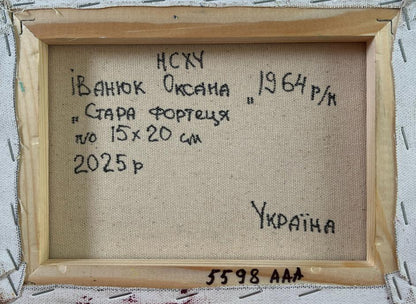 НСХУ
Іванюк Оксана 1964 р/н
„Стара фортеця"
п/о 15х20 см
2025р
Україна
5598 ААА